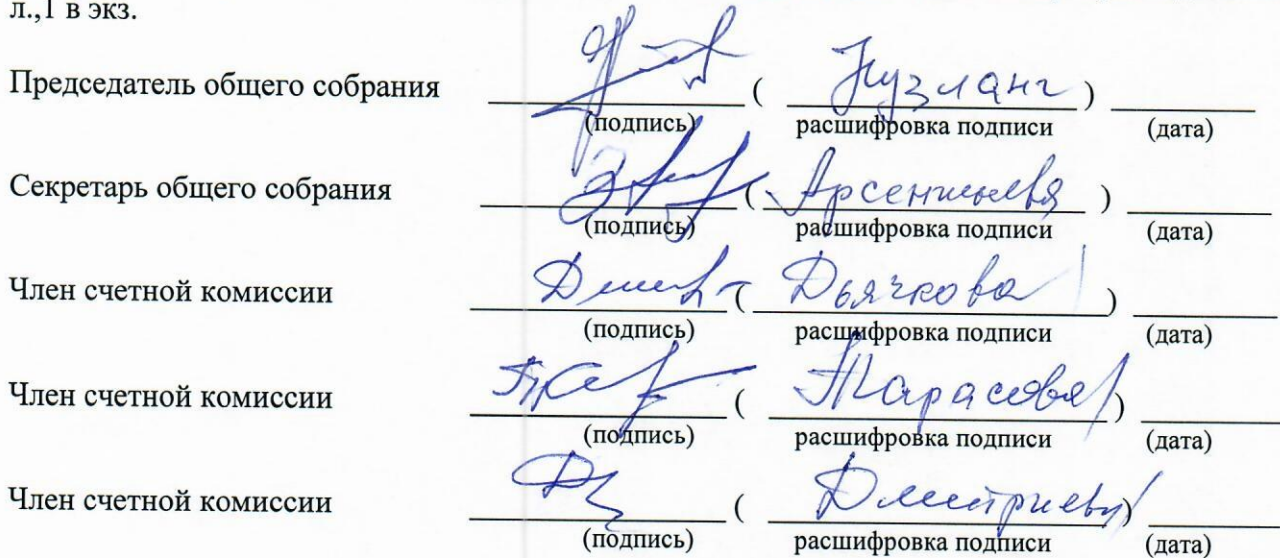 л.,1 в экз.
Председатель общего собрания ( ) 
(подпись) расшифровка подписи (дата)
Секретарь общего собрания ( Арсентьева )
(подпись) расшифровка подписи (дата)
Член счетной комиссии ( Дьячкова )
(подпись) расшифровка подписи (дата)
Член счетной комиссии ( Тарасова )
(подпись) расшифровка подписи (дата)
Член счетной комиссии ( Дмитриева )
(подпись) расшифровка подписи (дата)